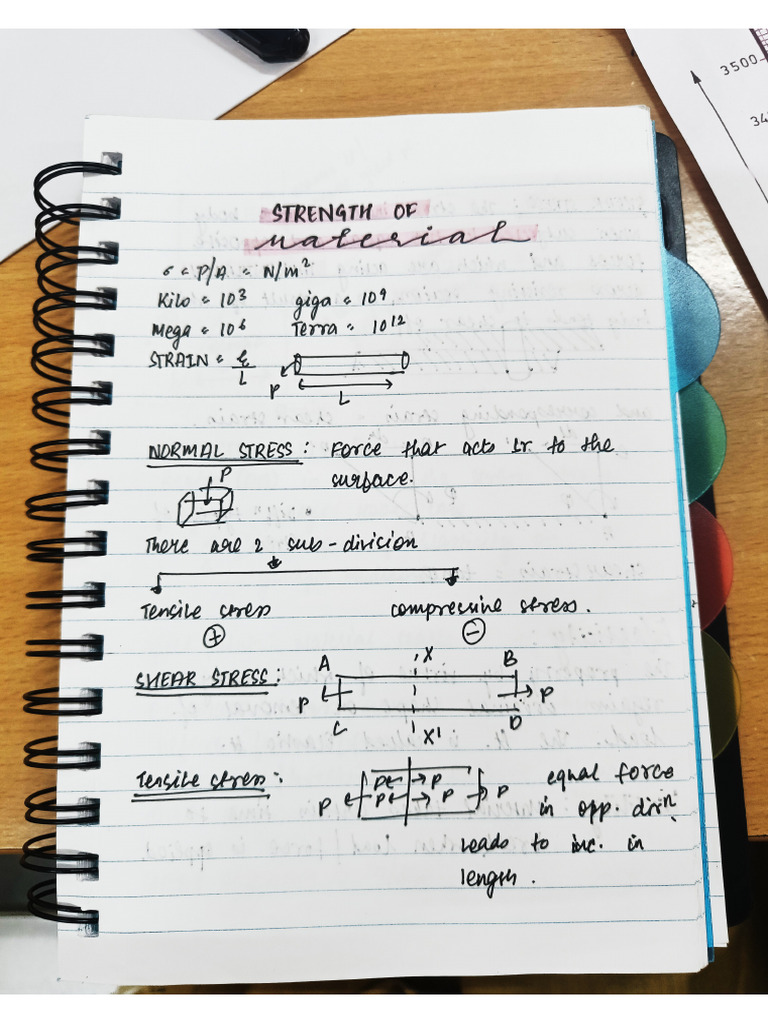 3500
34
STRENGTH OF
material
σ = P/A = N/m²
Kilo = 10³ giga = 10⁹
Mega = 10⁶ Terra = 10¹²
STRAIN = ξ/L
P
L
NORMAL STRESS: Force that acts ⊥r. to the
surface.
P
There are 2 sub-division
Tensile stress compressive stress.
+ -
SHEAR STRESS:
A X B
P P
C X' D
Tensile stress:
P P P P P P
equal force
in opp. dirⁿ.
leads to inc. in
length.